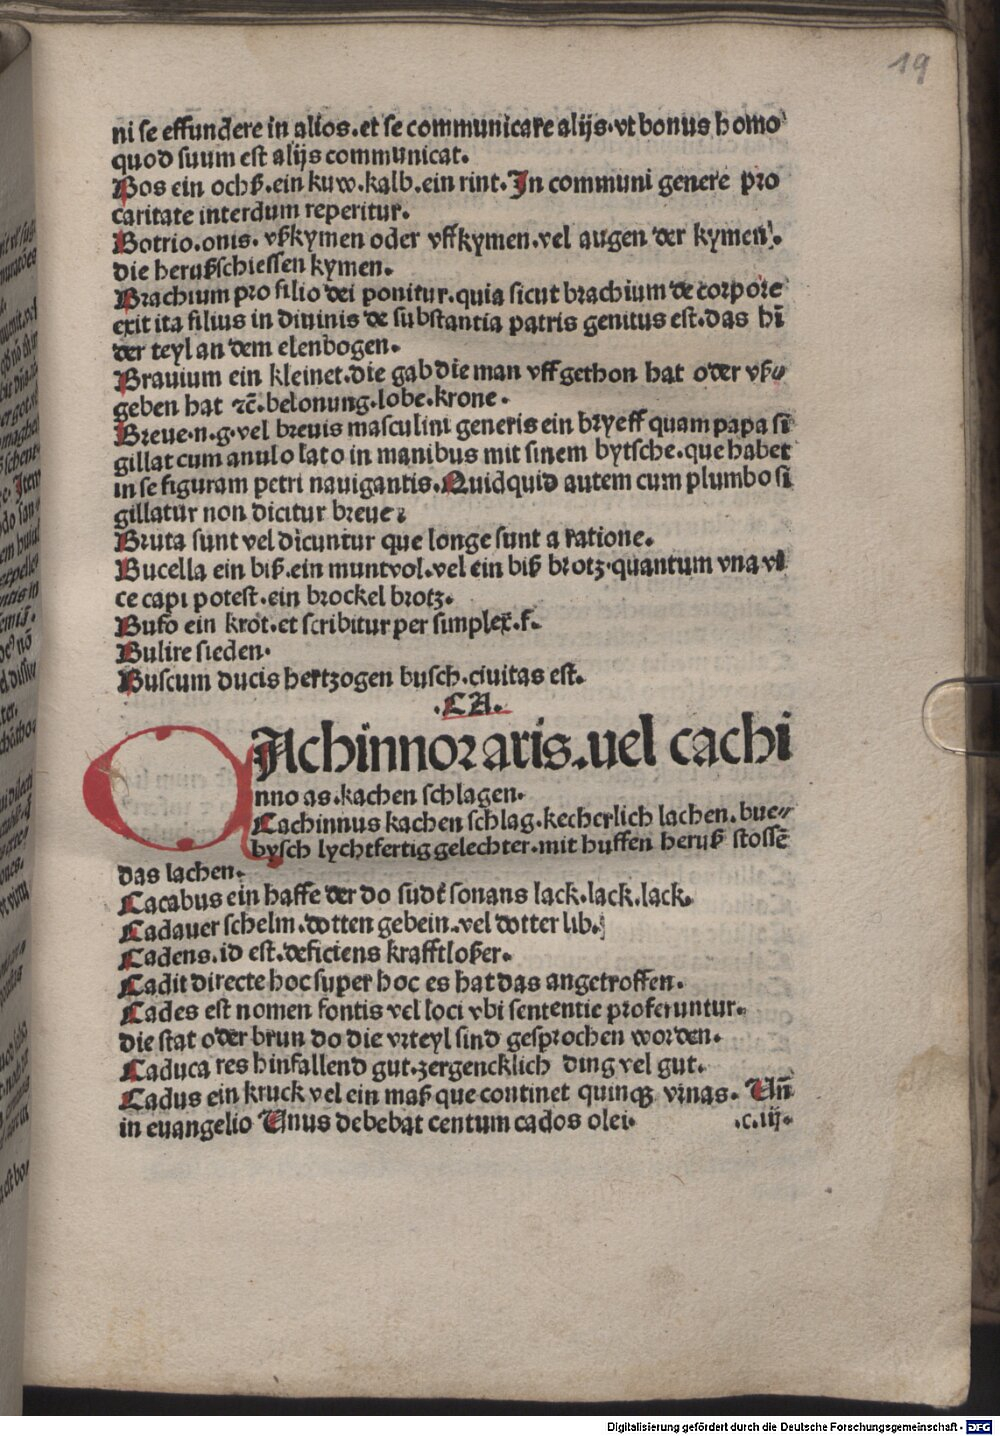 19
ni se effundere in alios.et se communicare alijs.vt bonus homo
quod suum est alijs communicat.
Bos ein ochß.ein kuw.kalb.ein rint.In communi genere pro
caritate interdum reperitur.
Botrio.onis. vßkymen oder vffkymen.vel augen der kymen.
die herußschiessen kymen.
Brachium pro filio dei ponitur.quia sicut brachium de corpore
exit ita filius in diuinis de substantia patris genitus est.das hī
der teyl an dem elenbogen.
Brauium ein kleinet.die gab die man vff gethon hat oder vß⸗
geben hat ⁊c̄.belonung.lobe.krone.
Breue.n.g.vel breuis masculini generis ein bryeff quam papa si
gillat cum anulo lato in manibus mit sinem bytsche.que habet
in se figuram petri nauigantis.Quidquid autem cum plumbo si
gillatur non dicitur breue:
Bruta sunt vel dicuntur que longe sunt a ratione.
Bucella ein biß.ein muntvol.vel ein biß brotz.quantum vna vi
ce capi potest.ein brockel brotz.
Bufo ein krot.et scribitur per simplex.f.
Bulire sieden.
Buscum ducis hertzogen busch.ciuitas est.
.CA.
CAchinnor aris.uel cachi
nno as.kachen schlagen.
Cachinnus kachen schlag.kecherlich lachen.bue⸗
bysch lychtfertig gelechter.mit huffen heruß stossē
das lachen.
Cacabus ein haffe der do sudt sonans lack.lack.lack.
Cadauer schelm.dotten gebein.vel dotter lib.
Cadens.id est.deficiens krafftloßer.
Cadit directe hoc super hoc es hat das angetroffen.
Cades est nomen fontis vel loci vbi sententie proferuntur.
die stat oder brun do die vrteyl sind gesprochen worden.
Caduca res hinfallend gut.zergencklich ding vel gut.
Cadus ein kruck vel ein maß que continet quinqꝫ vrnas. Vn̄
in euangelio Vnus debebat centum cados olei. .c.iij.
Digitalisierung gefördert durch die Deutsche Forschungsgemeinschaft - DFG